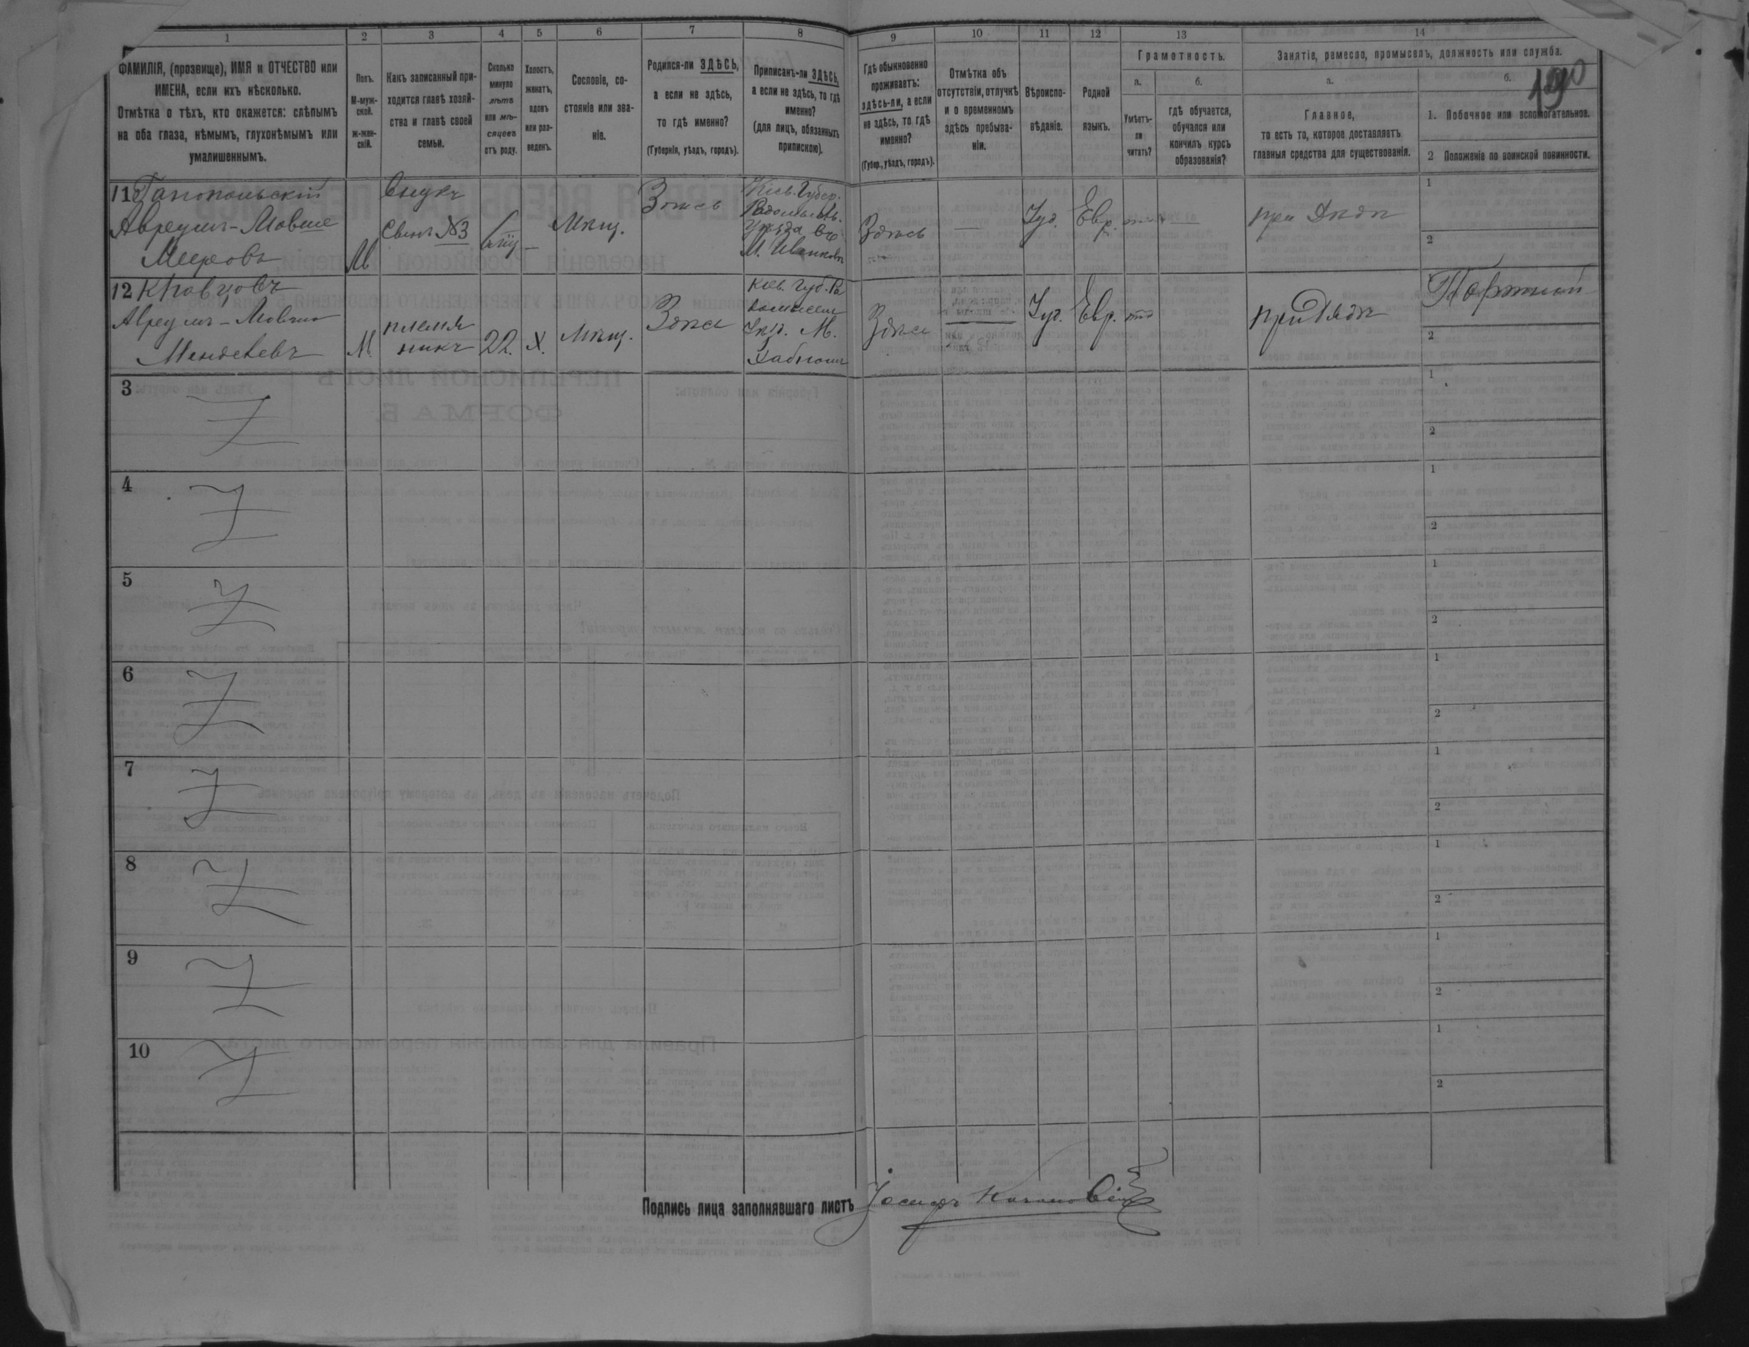 1 2 3 4 5 6 7 8 9 10 11 12 13 14
ФАМИЛІЯ, (прозвище), ИМЯ и ОТЧЕСТВО или
ИМЕНА, если ихъ нѣсколько.
Отмѣтка о тѣхъ, кто окажется: слѣпымъ
на оба глаза, нѣмымъ, глухонѣмымъ или
умалишеннымъ.
Полъ.
М-муж-
ской.
ж-жен-
скій.
Какъ записанный при-
ходится главѣ хозяй-
ства и главѣ своей
семьи.
Сколько
минуло
лѣтъ
или мѣ-
сяцевъ
отъ роду.
Холостъ,
женатъ,
вдовъ
или раз-
веденъ.
Сословіе, со-
стояніе или зва-
ніе.
Родился-ли ЗДѢСЬ,
а если не здѣсь,
то гдѣ именно?
(Губернія, уѣздъ, городъ).
Приписанъ-ли ЗДѢСЬ,
а если не здѣсь, то гдѣ
именно?
(для лицъ, обязанныхъ
припискою).
Гдѣ обыкновенно
проживаетъ:
здѣсь-ли, а если
не здѣсь, то гдѣ
именно?
(Губер., уѣздъ, городъ).
Отмѣтка объ
отсутствіи, отлучкѣ
и о временномъ
здѣсь пребыва-
ніи.
Вѣроиспо-
вѣданіе.
Родной
языкъ.
Грамотность.
а.
Умѣетъ-
ли
читать?
б.
гдѣ обучается,
обучался или
кончилъ курсъ
образованія?
Занятіе, ремесло, промыселъ, должность или служба.
а.
Главное,
то есть то, которое доставляетъ
главныя средства для существованія.
б.
190
1. Побочное или вспомогательное.
2 Положеніе по воинской повинности.
11
Авреумъ-Мовше
Мееровъ
М
Внукъ
Сынъ №3
—
Мѣщ.
Здѣсь
Кіев. Губер.
Радомысль.
Уѣзда
М. Иванковъ
Здѣсь
—
Іуд.
Евр.
при Дѣдѣ
1
2
12 Кравцовъ
Авреумъ-Мовше
Менделевъ
М.
племян
никъ
22.
Х.
Мѣщ.
Здѣсь
Кіев. Губ. Ра
М.
Здѣсь
Іуд.
Евр.
при Дядѣ
1
2
3
1
2
4
1
2
5
1
2
6
1
2
7
1
2
8
1
2
9
1
2
10
1
2
Подпись лица заполнявшаго листъ